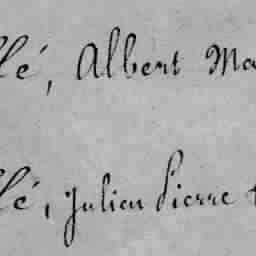 llé, Albert Ma
llé, Julien Pierre